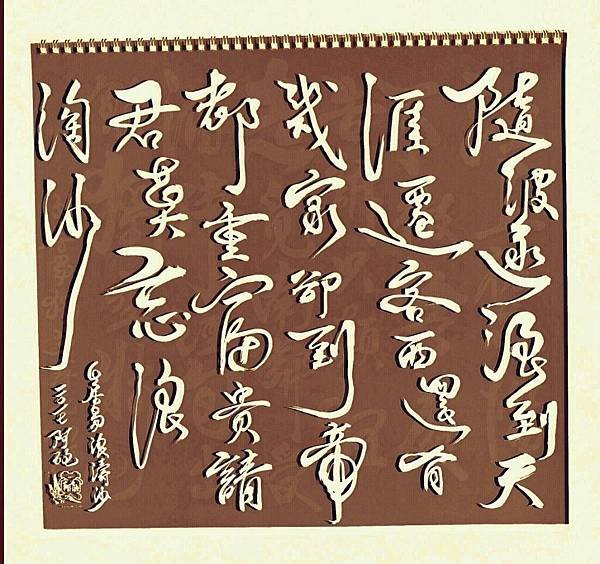 隨波逐浪到天
涯遷客西還有
幾家卻到帝
都重富貴請
君莫忘浪
淘沙
白居易浪濤沙